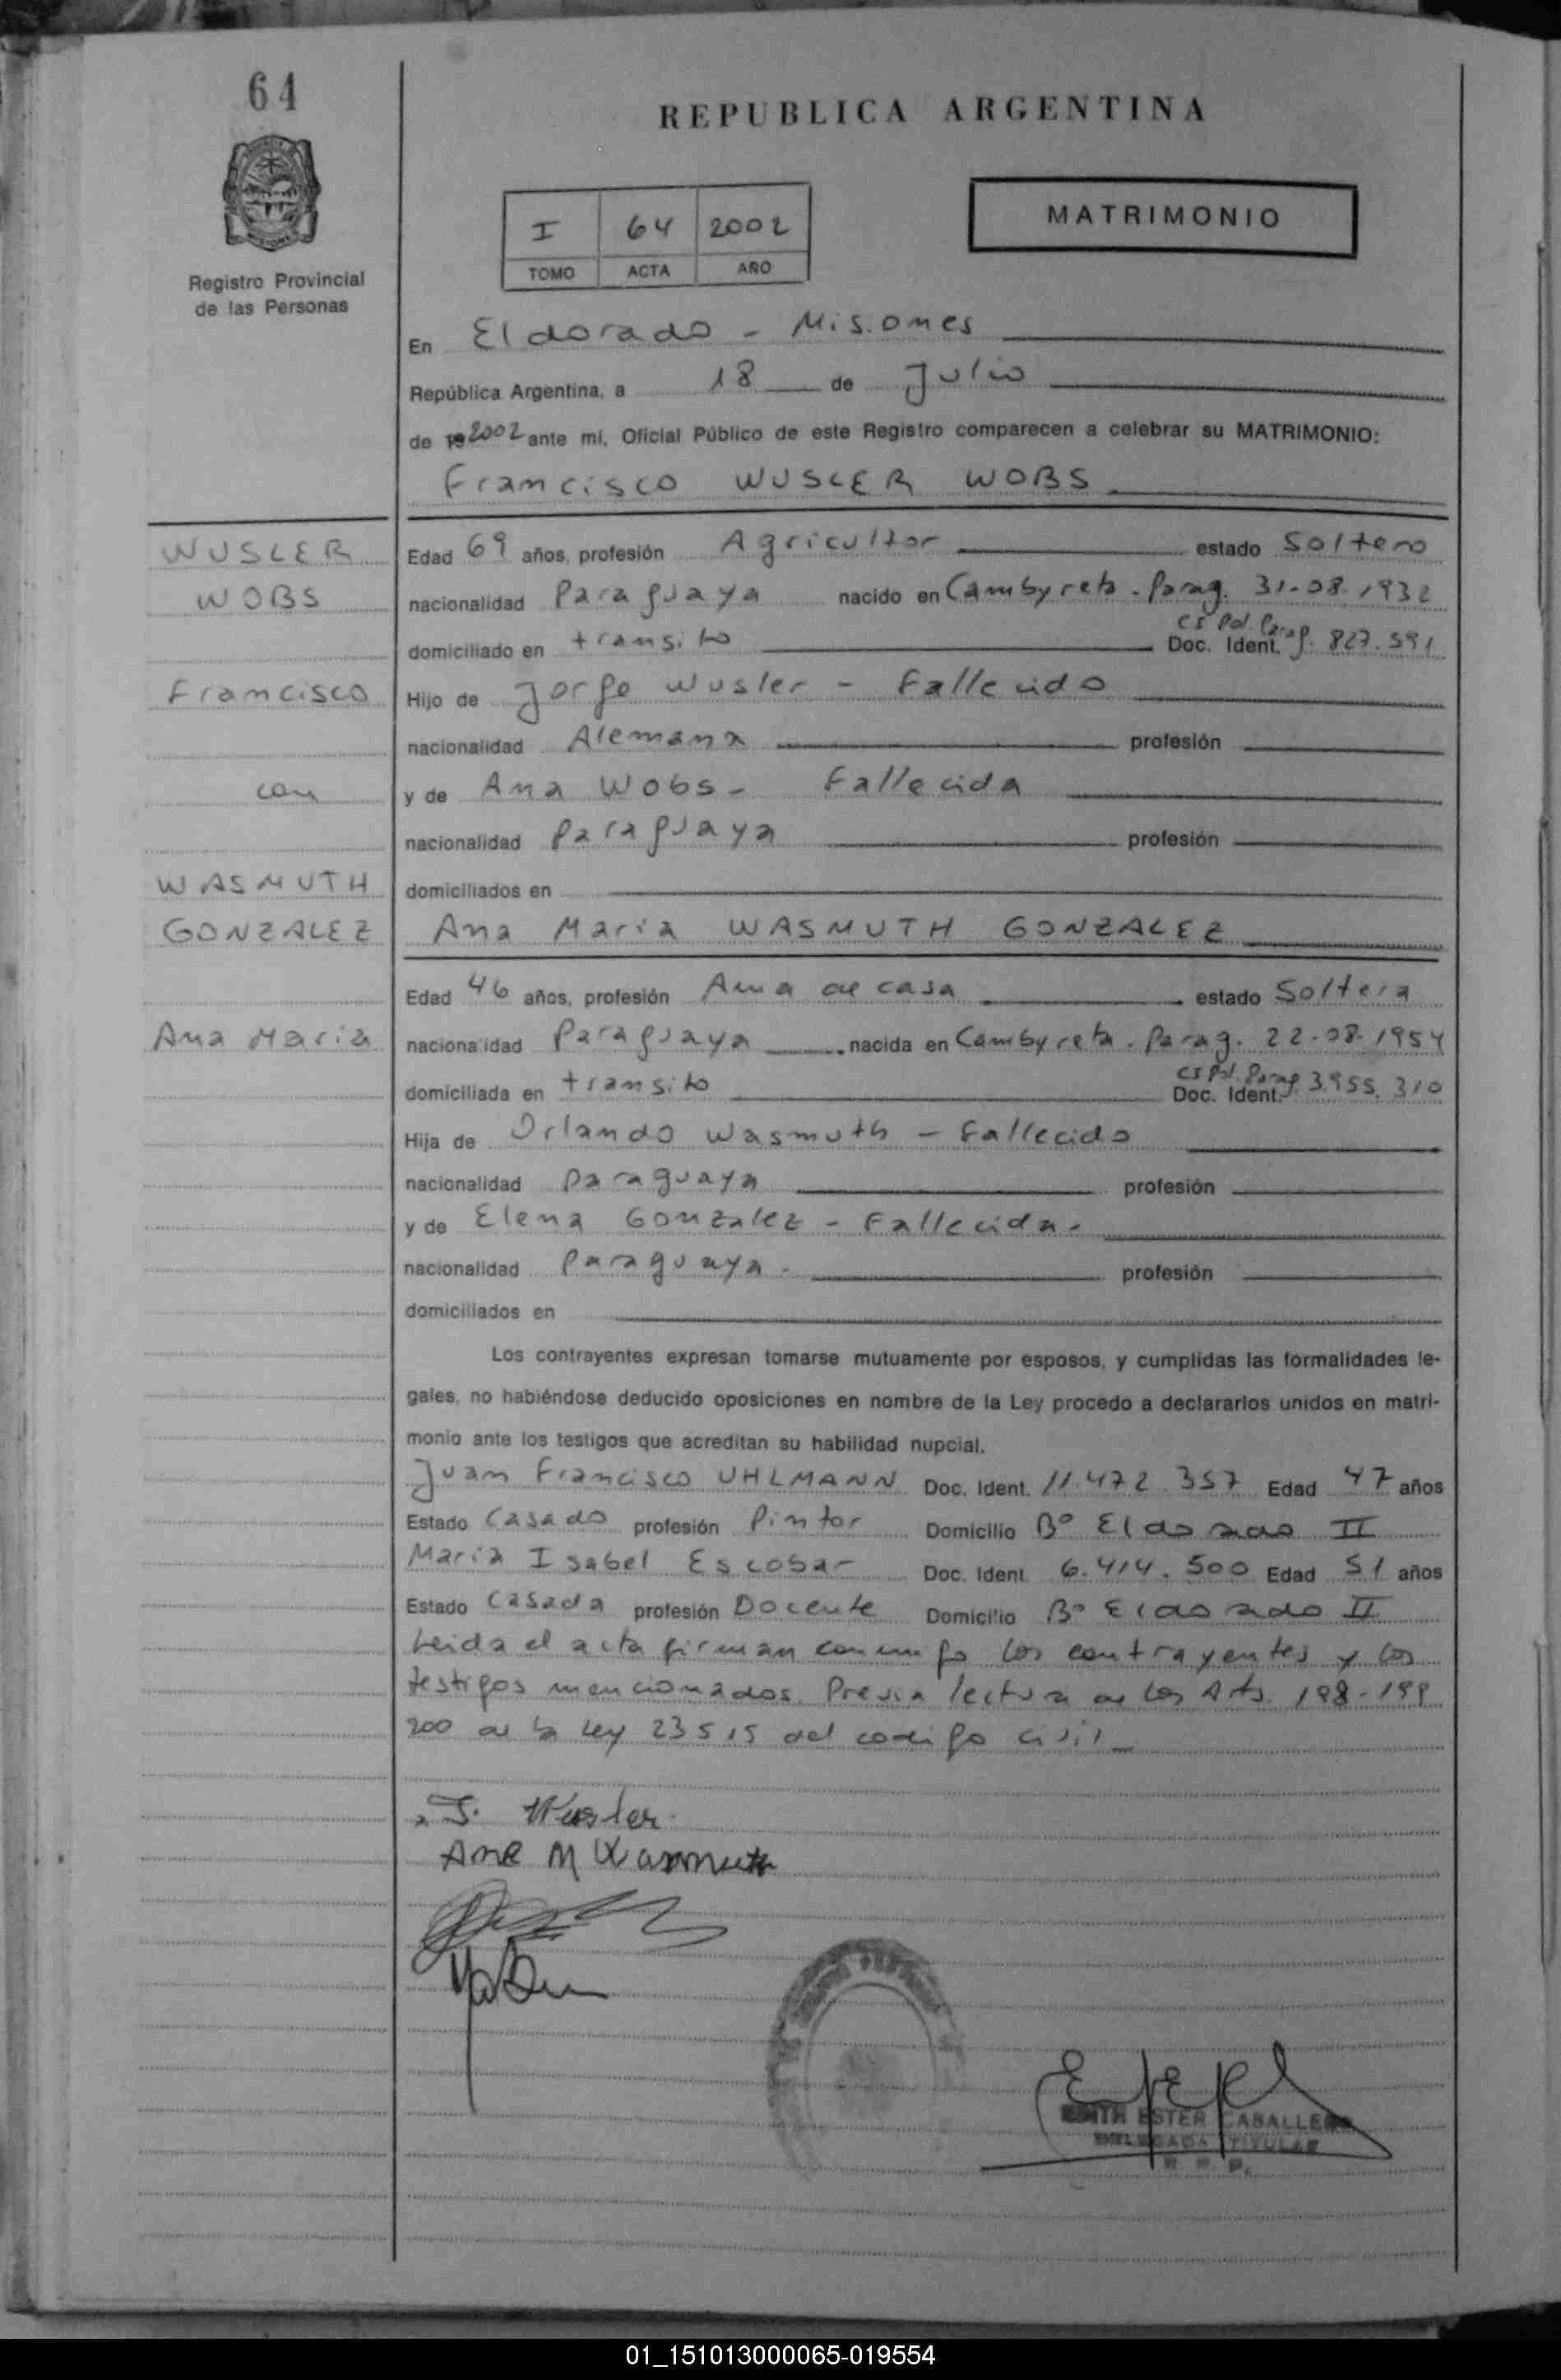 64
REPUBLICA ARGENTINA
Registro Provincial
de las Personas
I 64 2002
TOMO ACTA AÑO
MATRIMONIO
En Eldorado - Misiones
República Argentina, a 18 de Julio
de 19 2002 ante mí, Oficial Público de este Registro comparecen a celebrar su MATRIMONIO:
Francisco WUSLER WOBS
WUSLER
WOBS
Francisco
con
WASMUTH
GONZALEZ
Ana Maria
Edad 69 años, profesión Agricultor estado Soltero
nacionalidad Paraguaya nacido en Cambyreta. Parag. 31-08-1932
domiciliado en transito Doc. Ident. CI Pol. Parag. 827.591
Hijo de Jorge Wusler - Fallecido
nacionalidad Alemana profesión
y de Ana Wobs - Fallecida
nacionalidad Paraguaya profesión
domiciliados en
Ana Maria WASMUTH GONZALEZ
Edad 46 años, profesión Ama de casa estado Soltera
nacionalidad Paraguaya nacida en Cambyreta. Parag. 22-08-1954
domiciliada en transito Doc. Ident. CI Pol. Parag. 3.955.310
Hija de Orlando Wasmuth - Fallecido
nacionalidad Paraguaya profesión
y de Elena Gonzalez - Fallecida -
nacionalidad Paraguaya - profesión
domiciliados en
Los contrayentes expresan tomarse mutuamente por esposos, y cumplidas las formalidades le-
gales, no habiéndose deducido oposiciones en nombre de la Ley procedo a declararlos unidos en matri-
monio ante los testigos que acreditan su habilidad nupcial.
Juan Francisco UHLMANN Doc. Ident. 11.472.357 Edad 47 años
Estado Casado profesión Pintor Domicilio Bº Eldorado II
Maria Isabel Escobar Doc. Ident. 6.414.500 Edad 51 años
Estado Casada profesión Docente Domicilio Bº Eldorado II
Leida el acta firman conmigo los contrayentes y los
testigos mencionados. Previa lectura de los Arts. 198-199
200 de la Ley 23515 del codigo civil
Wusler
Ana M Wasmuth
EDITH ESTER CABALLERO
DELEGADA TITULAR
R. P. P.
01_151013000065-019554